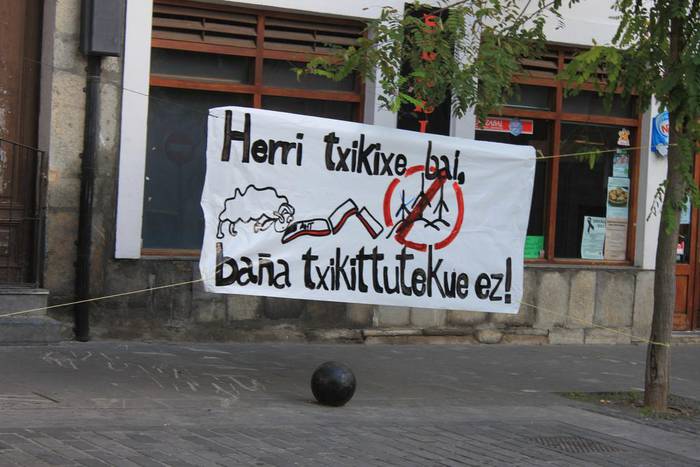 Herri txikixe bai,
baña txikittutekue ez!
ZABAL